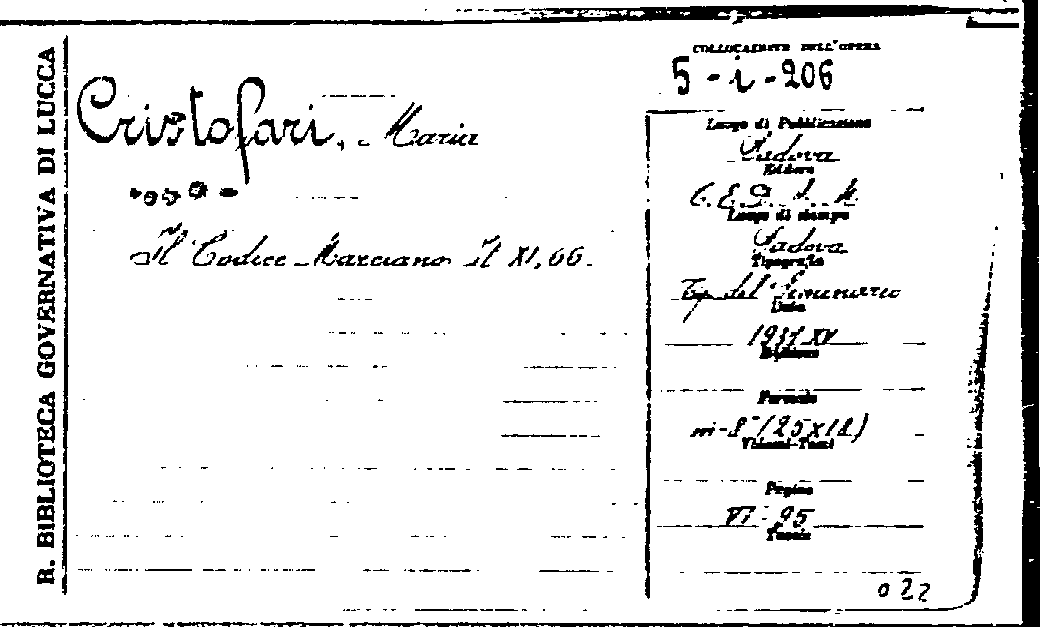 R. BIBLIOTECA GOVERNATIVA DI LUCCA
Cristofari, Maria
Il Codice Marciano It XI, 66.
COLLOCAZIONE DELL'OPERA
5 - i - 206
Luogo di Pubblicazione
Padova
Editore
C.E.D.A.M.
Luogo di stampa
Padova
Tipografia
Tip. del Seminario
Data
1937 XV
Edizione
Formato
in-8° (25X18)
Volumi-Tomi
Pagine
VI - 95
Tavole
022